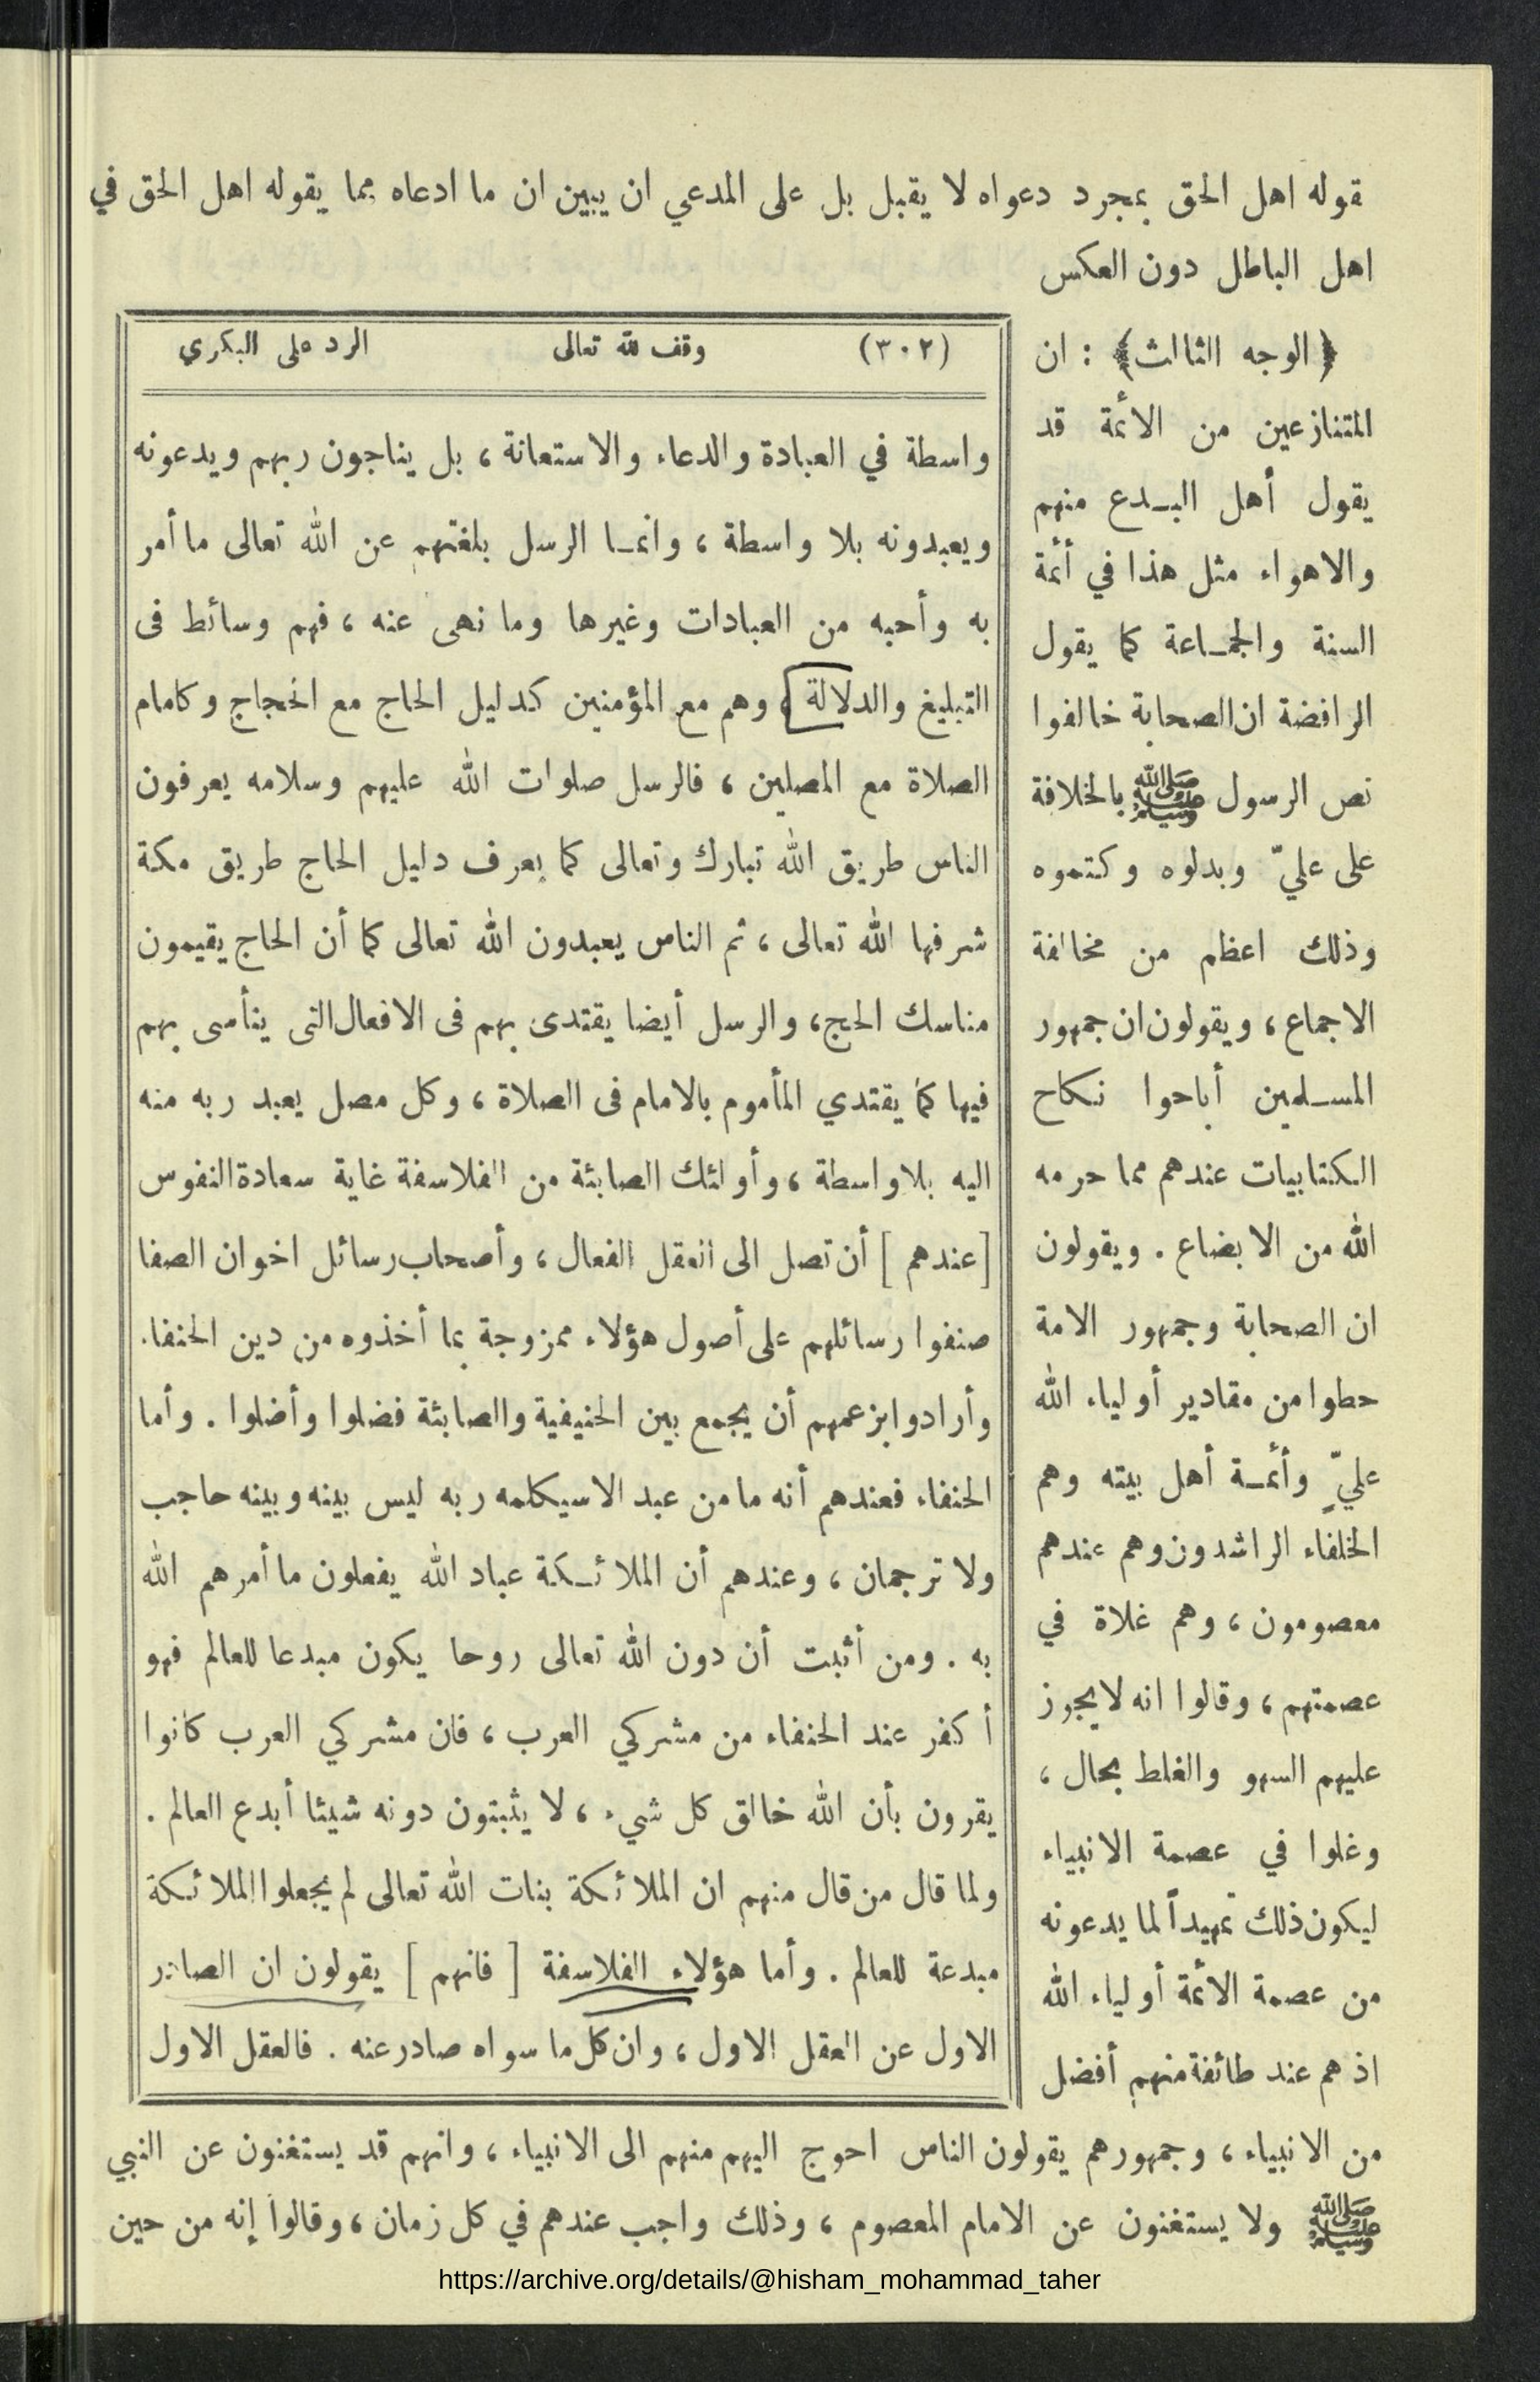 قوله اهل الحق بمجرد دعواه لا يقبل بل على المدعي ان يبين ان ما ادعاه مما يقوله اهل الحق في
اهل الباطل دون العكس
﴿الوجه الثالث﴾ : ان
المتنازعين من الائمة قد
يقول أهل البـدع منهم
والاهواء مثل هذا في أئمة
السنة والجمـاعة كما يقول
الرافضة ان الصحابة خالفوا
نص الرسول ﷺ بالخلافة
على عليّ وبدلوه وكتموه
وذلك اعظم من مخالفة
الاجماع ، ويقولون ان جمهور
المسـلمين أباحوا نكاح
الكتابيات عندهم مما حرمه
الله من الابضاع . ويقولون
ان الصحابة وجمهور الامة
حطوا من مقادير أولياء الله
عليٍّ وأئمـة أهل بيته وهم
الخلفاء الراشدون وهم عندهم
معصومون ، وهم غلاة في
عصمتهم ، وقالوا انه لا يجوز
عليهم السهو والغلط بحال ،
وغلوا في عصمة الانبياء
ليكون ذلك تمهيداً لما يدعونه
من عصمة الائمة أولياء الله
اذ هم عند طائفة منهم أفضل
من الانبياء ، وجمهورهم يقولون الناس احوج اليهم منهم الى الانبياء ، وانهم قد يستغنون عن النبي
ﷺ ولا يستغنون عن الامام المعصوم ، وذلك واجب عندهم في كل زمان ، وقالوا إنه من حين
(٣٠٢) وقف لله تعالى الرد على البكري
واسطة في العبادة والدعاء والاستعانة ، بل يناجون ربهم ويدعونه
ويعبدونه بلا واسطة ، وانمـا الرسل بلغتهم عن الله تعالى ما أمر
به وأحبه من العبادات وغيرها وما نهى عنه ، فهم وسائط فى
التبليغ والدلالة ، وهم مع المؤمنين كدليل الحاج مع الحجاج وكامام
الصلاة مع المصلين ، فالرسل صلوات الله عليهم وسلامه يعرفون
الناس طريق الله تبارك وتعالى كما يعرف دليل الحاج طريق مكة
شرفها الله تعالى ، ثم الناس يعبدون الله تعالى كما أن الحاج يقيمون
مناسك الحج ، والرسل أيضا يقتدى بهم فى الافعال التى يتأسى بهم
فيها كما يقتدي المأموم بالامام فى الصلاة ، وكل مصل يعبد ربه منه
اليه بلا واسطة ، وأولئك الصابئة من الفلاسفة غاية سعادة النفوس
[ عندهم ] أن تصل الى العقل الفعال ، وأصحاب رسائل اخوان الصفا
صنفوا رسائلهم على أصول هؤلاء ممزوجة بما أخذوه من دين الحنفاء
وأرادوا بزعمهم أن يجمع بين الحنيفية والصابئة فضلوا وأضلوا . وأما
الحنفاء فعندهم أنه ما من عبد الا سيكلمه ربه ليس بينه وبينه حاجب
ولا ترجمان ، وعندهم أن الملائـكة عباد الله يفعلون ما أمرهم الله
به . ومن أثبت أن دون الله تعالى روحا يكون مبدعا للعالم فهو
أكفر عند الحنفاء من مشركي العرب ، فان مشركي العرب كانوا
يقرون بأن الله خالق كل شيء ، لا يثبتون دونه شيئا أبدع العالم .
ولما قال من قال منهم ان الملائكة بنات الله تعالى لم يجعلوا الملائكة
مبدعة للعالم . وأما هؤلاء الفلاسفة [ فانهم ] يقولون ان الصادر
الاول عن العقل الاول ، وان كل ما سواه صادر عنه . فالعقل الاول
https://archive.org/details/@hisham_mohammad_taher